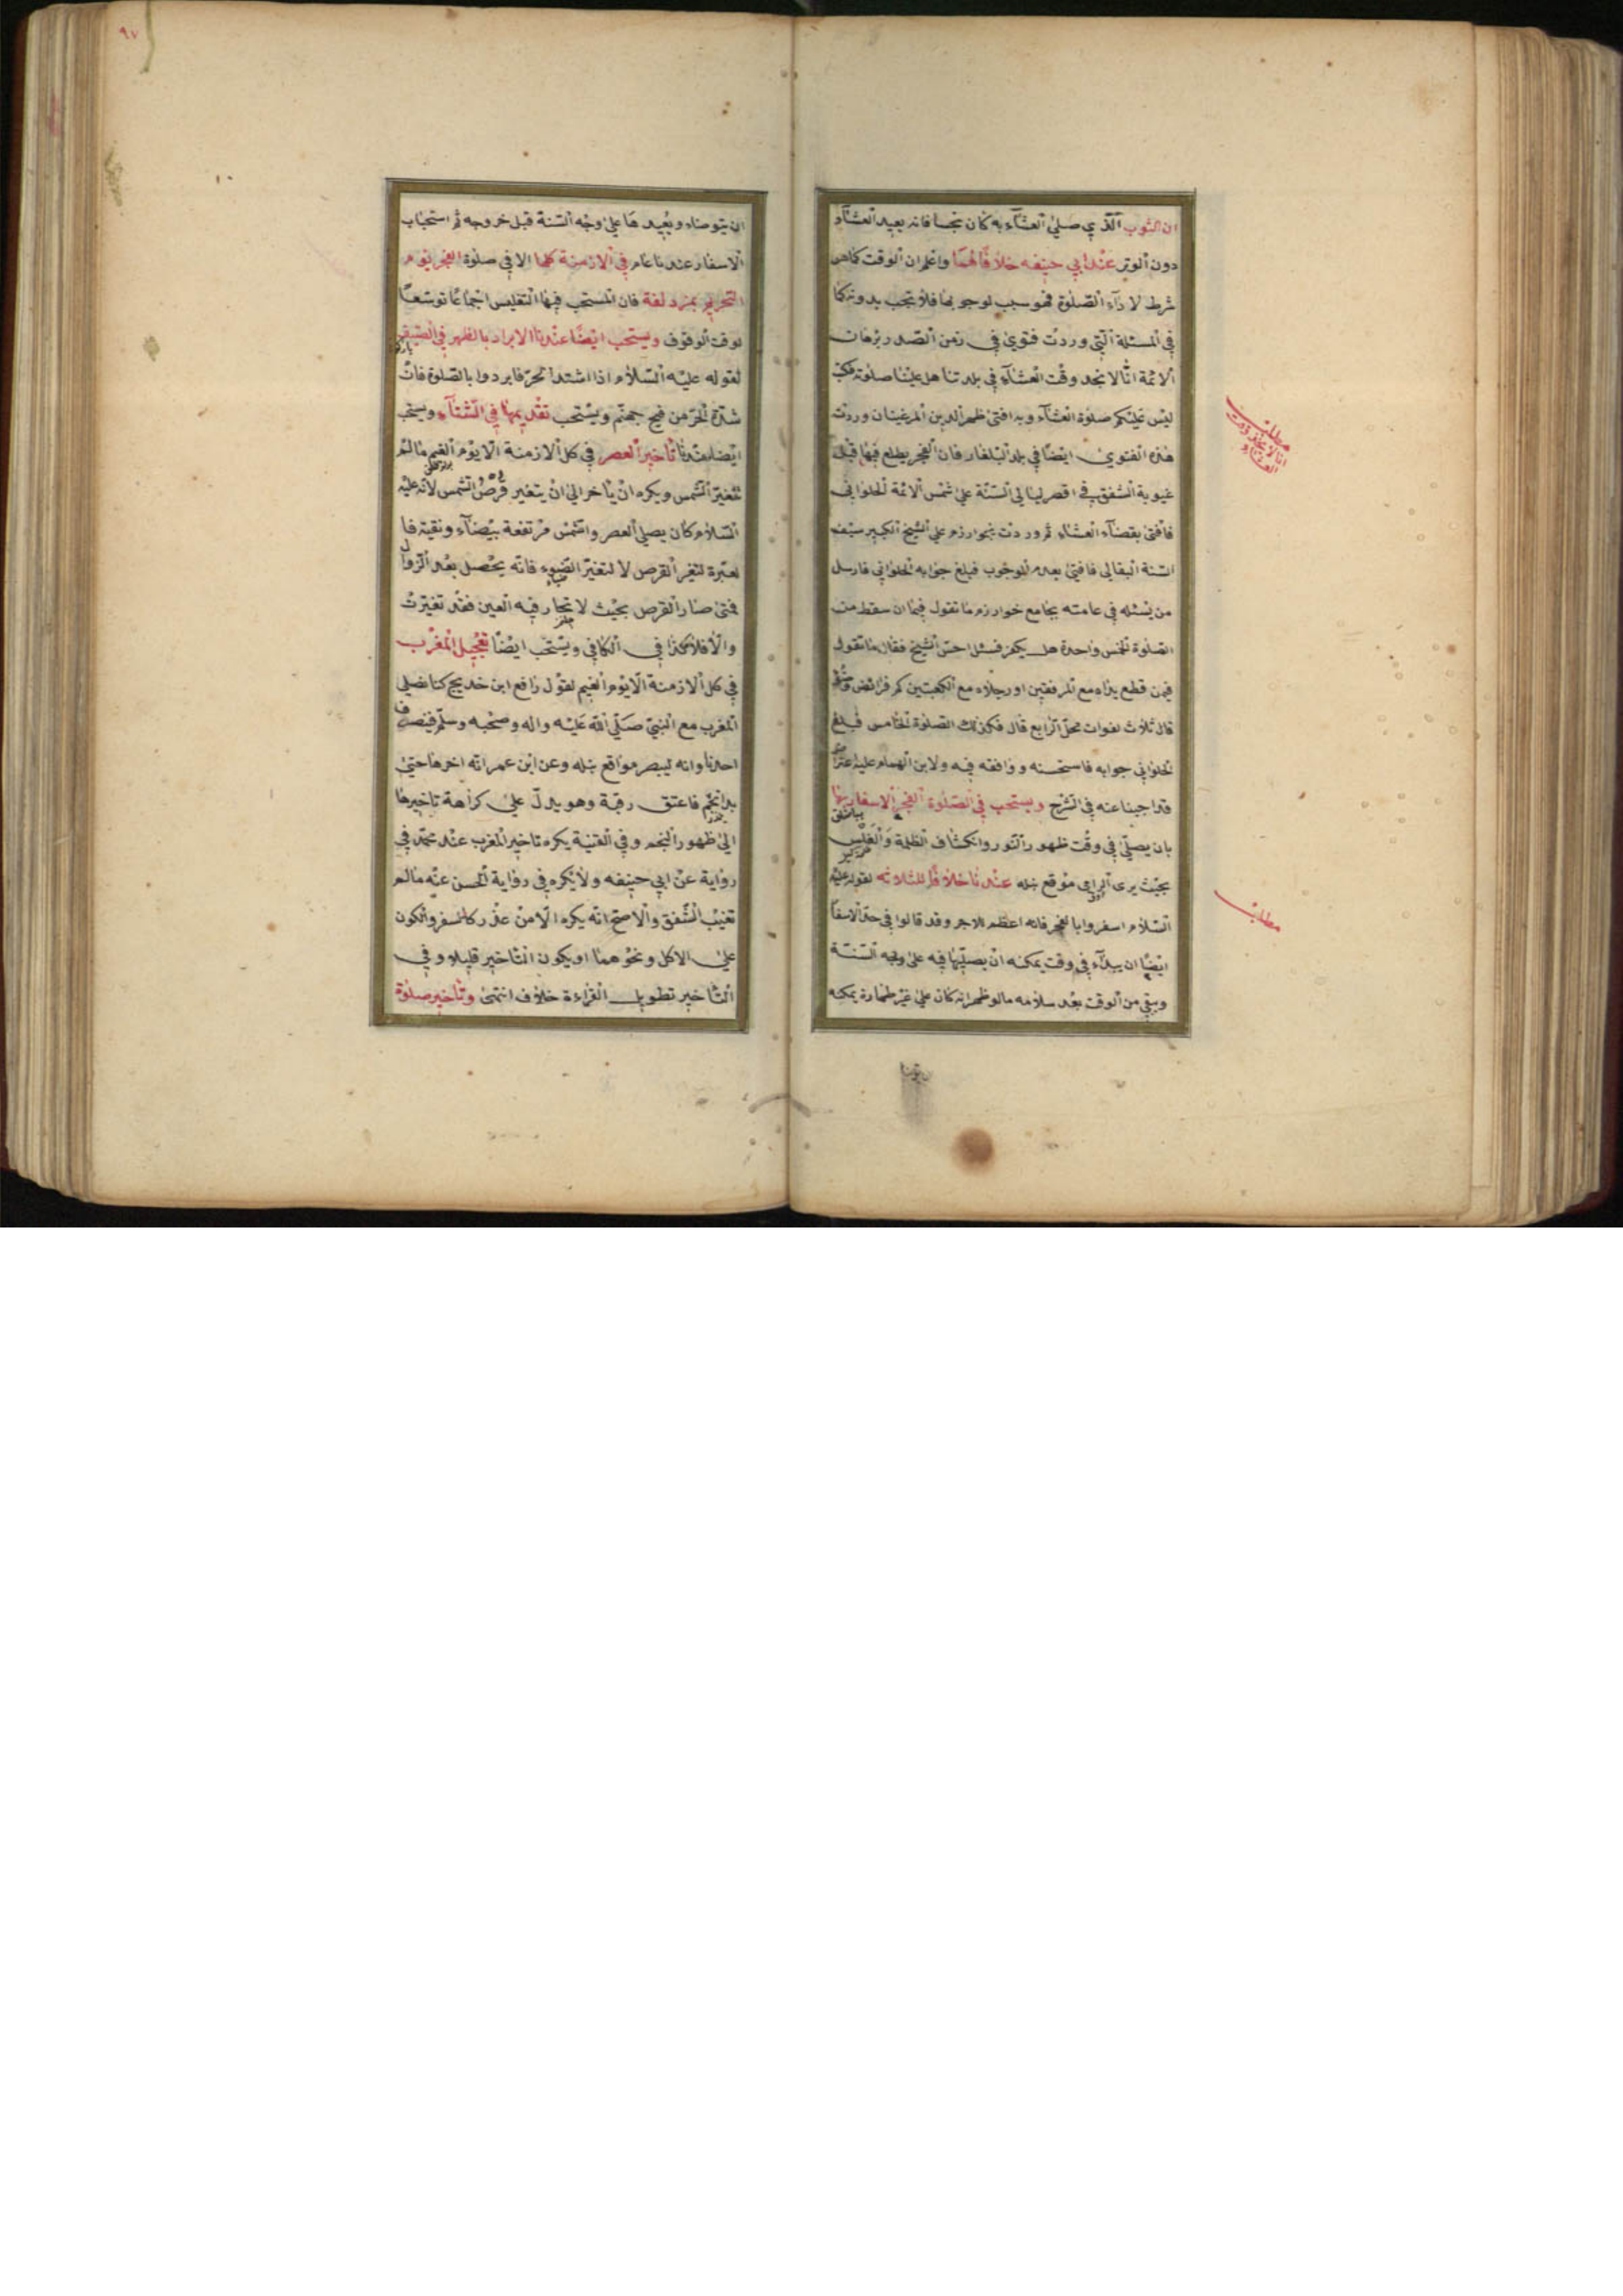 ان الثوب الذي صلي العشاء به كان نجسا فانه يعيد العشاء
دون الوتر عند ابي حنيفه خلافا لهما واعلم ان الوقت كما هو
شرط لاداء الصلوة فهو سبب لوجوبها فلا تجب بدونه كما
في المسئلة التي وردت فتوى في زمن الصدر برهان
الائمة انا لا نجد وقت العشاء في بلدتنا هل علينا صلوته فكتب
ليس عليكم صلوة العشاء وبه افتى ظهير الدين المرغينان ووردت
هذه الفتوى ايضا في بلد البلغار فان الفجر يطلع فيها قبل
غيوبة الشفق في اقصر ليالي السنة على شمس الائمة الحلواني
فافتى بقضاء العشاء ثم وردت بخوارزم علي الشيخ الكبير سيف
السنة البقالي فافتى بعدم الوجوب فبلغ جوابه الحلواني فارسل
من يسئله في عامته بجامع خوارزم ما تقول فيما ان سقط من
الصلوة الخمس واحدة هل يكفر فسئل احس الشيخ فقال ما تقول
فيمن قطع يداه مع المرفقين او رجلاه مع الكعبين كم فرائض وضوئه
قال ثلاث لفوات محل الرابع قال فكذلك الصلوة الخامس فبلغ
الحلواني جوابه فاستحسنه ووافقه فيه ولابن الهمام عليه اعتراض
قد اجبنا عنه في الشرح ويستحب في الصلوة الفجر الاسفار بها
بان يصلي في وقت ظهور النور وانكشاف الظلمة والغلس
بحيث يرى الرامي موقع نبله عندنا خلافا للثلاثه لقوله عليه
السلام اسفروا بالفجر فانه اعظم للاجر وقد قالوا في حد الاسفار
ايضا ان يبداء في وقت يمكنه ان يصليها فيه على وجه السنة
وبقي من الوقت بعد سلامه مالو ظهر انه كان علي غير طهارة يمكنه
مطلب
انا لا نجد وقت
العشاء
مطلب
٩٧
ان يتوضاء ويعيدها على وجه السنة قبل خروجه ثم استحباب
الاسفار عندنا عام في الازمنة كلها الا في صلوة الفجر يوم
النحر بمزدلفة فان المستحب فيها التغليس اجماعا توسعا
لوقت الوقوف ويستحب ايضا عندنا الابراد بالظهر في الصيف
لقوله عليه السلام اذا اشتد الحر فابردوا بالصلوة فان
شدة الحر من فيح جهنم ويستحب تقديمها في الشتاء ويستحب
ايضا عندنا تاخير العصر في كل الازمنة الا يوم الغيم مالم
تتغير الشمس ويكره ان يأخر الى ان يتغير قرص الشمس لانه عليه
السلام كان يصلي العصر والشمس مرتفعة بيضاء ونقية فا
لعبرة لتغير القرص لا لتغير الضوء فانه يحصل بعد الزوال
فمتى صار القرص بحيث لا تحار فيه العين فقد تغيرت
والا فلا كذا في الكافي ويستحب ايضا تعجيل المغرب
في كل الازمنة الا يوم الغيم لقول رافع ابن خديج كنا نصلي
المغرب مع النبي صلي الله عليه واله وصحبه وسلم فينصرف
احدنا وانه ليبصر مواقع نبله وعن ابن عمر انه اخرها حتى
بدا نجم فاعتق رقبة وهو يدل علي كراهة تاخيرها
الى ظهور النجم وفي القنية يكره تاخير المغرب عند محمد في
رواية عن ابي حنيفه ولا يكره في رواية الحسن عنه مالم
تغيب الشفق والاصح انه يكره الا من عذر كالسفر والكون
علي الاكل ونحوهما او يكون التاخير قليلا وفي
التاخير تطويل القراءة خلاف انتهى وتاخير صلوة